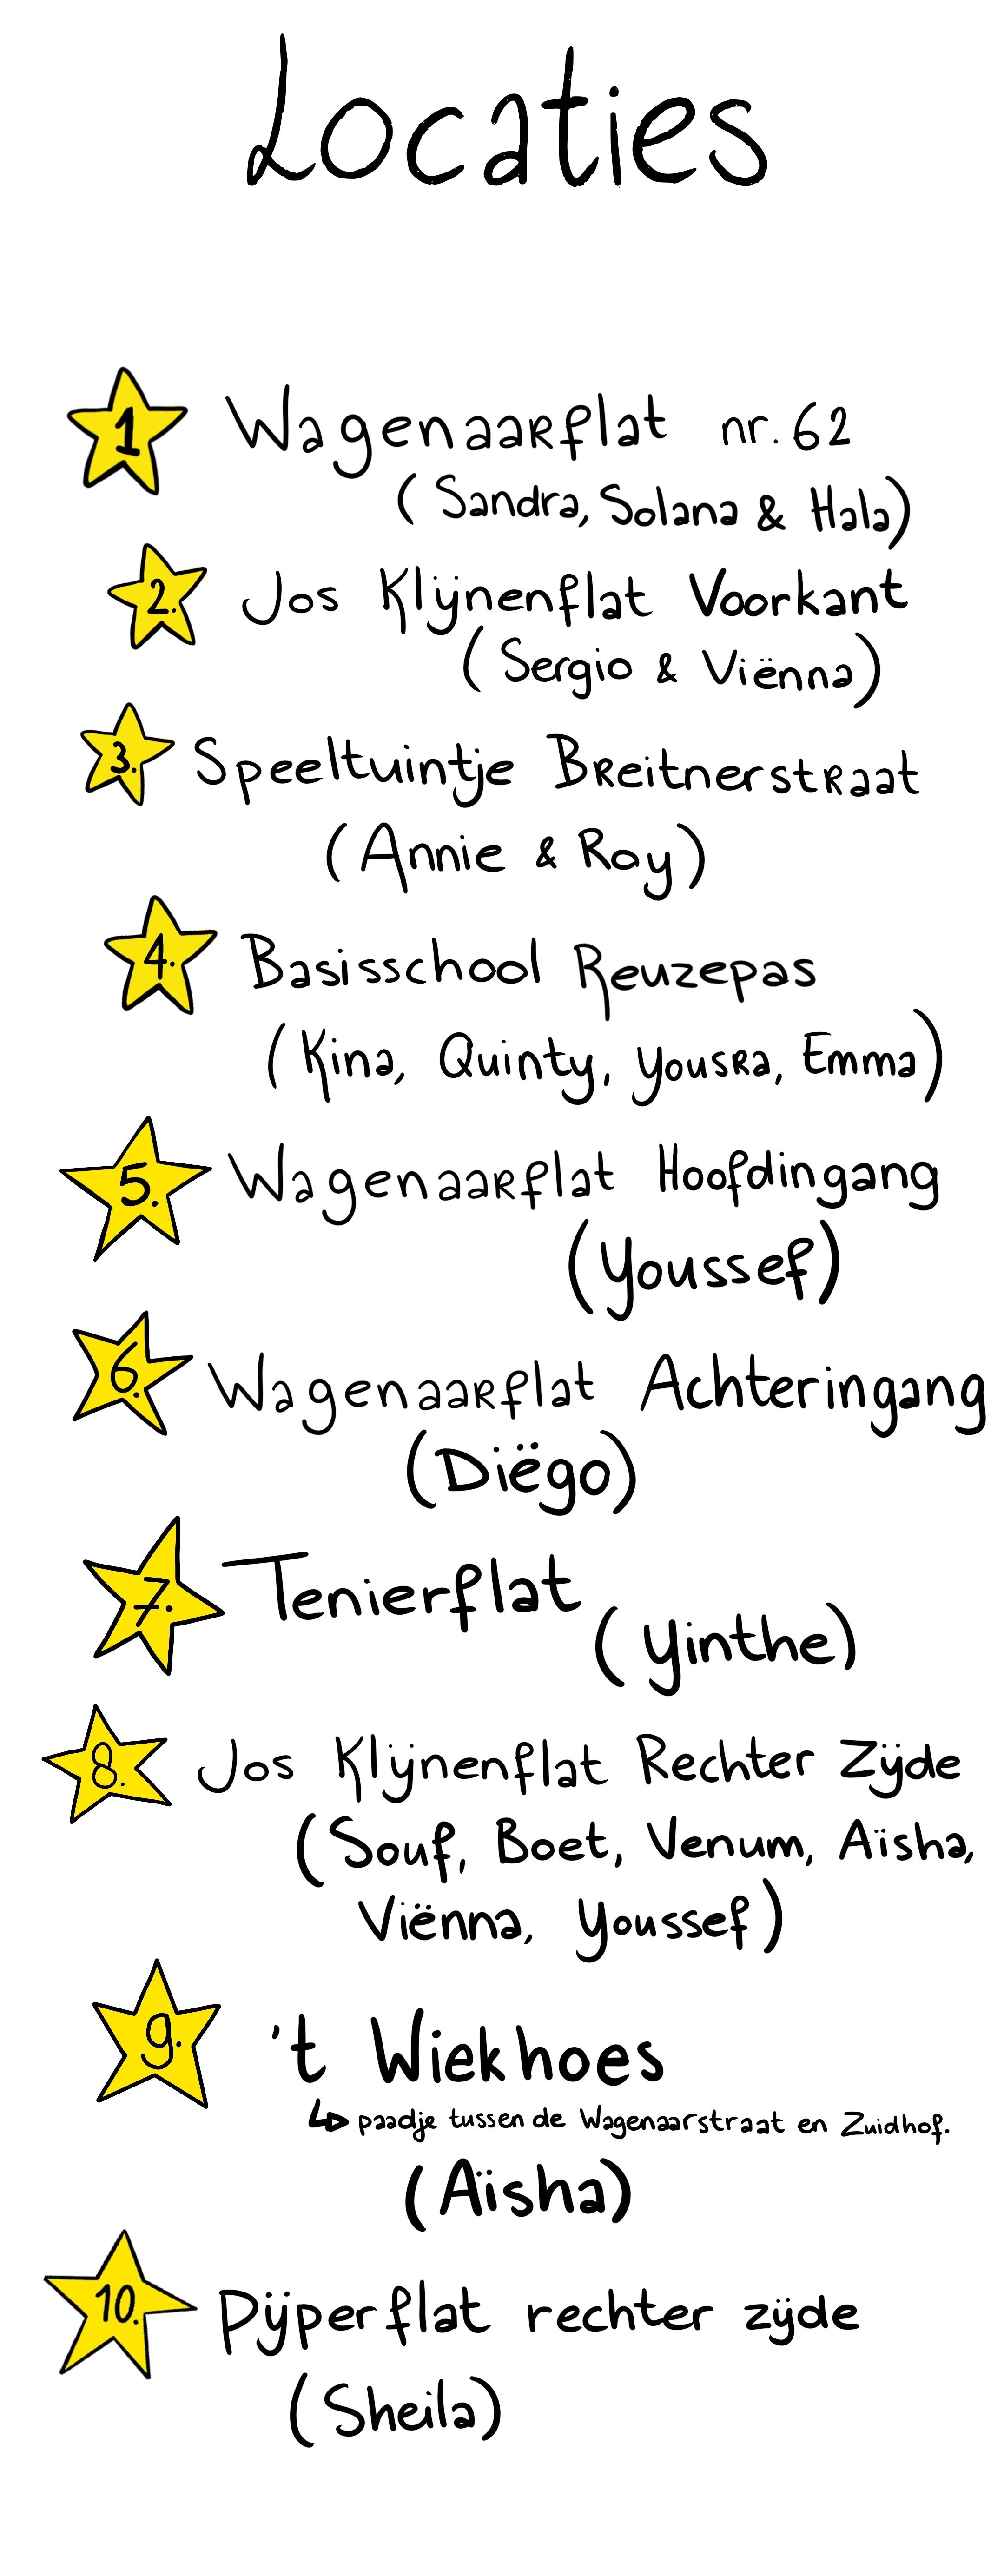 Locaties
1 Wagenaarflat nr. 62
(Sandra, Solana & Hala)
2. Jos Klijnenflat Voorkant
(Sergio & Viënna)
3. Speeltuintje Breitnerstraat
(Annie & Roy)
4. Basisschool Reuzepas
(Kina, Quinty, Yousra, Emma)
5. Wagenaarflat Hoofdingang
(Youssef)
6. Wagenaarflat Achteringang
(Diëgo)
7. Tenierflat
(Yinthe)
8. Jos Klijnenflat Rechter Zijde
(Souf, Boet, Venum, Aïsha,
Viënna, Youssef)
9. 't Wiekhoes
↳ paadje tussen de Wagenaarstraat en Zuidhof.
(Aïsha)
10. Pijperflat rechter zijde
(Sheila)